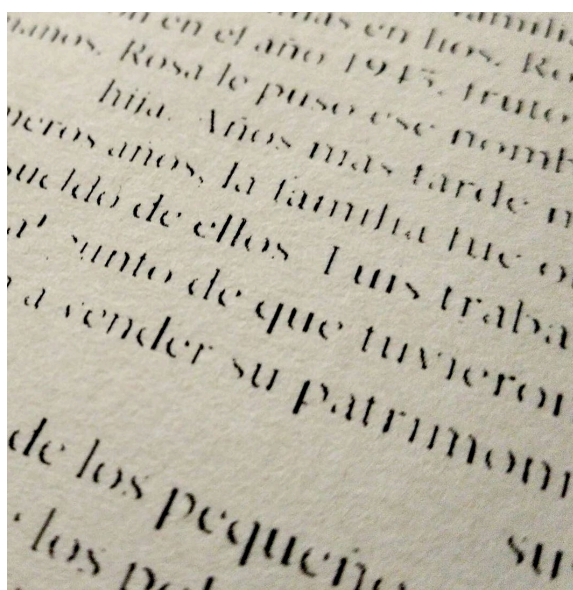 familia
en el año 1945, fruto
Rosa le puso ese nomb
hija. Años más tarde n
neros años, la familia fue o
sueldo de ellos. Luis traba
a' punto de que tuvieron
a vender su patrimoni
de los pequeño
su
los